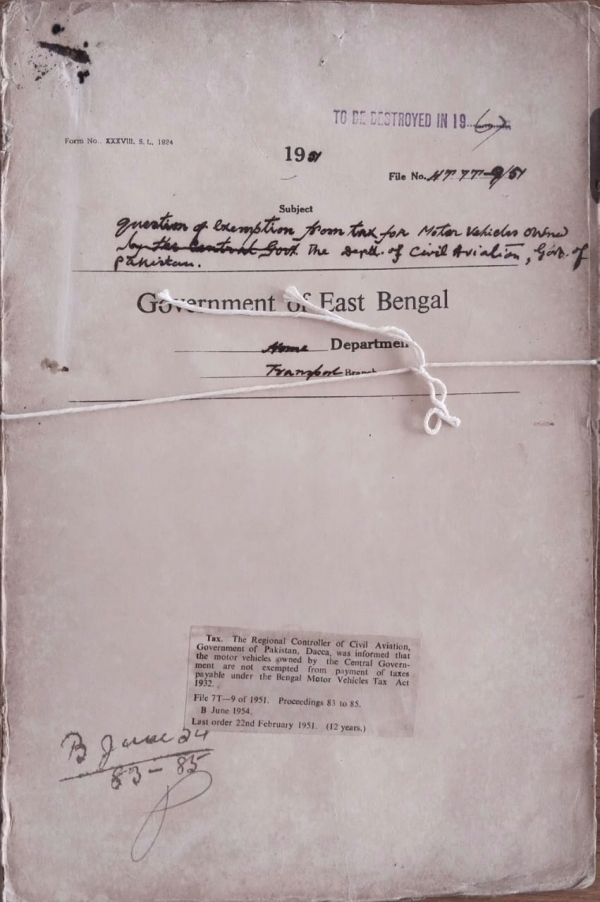 TO BE DESTROYED IN 1967
Form No. XXXVIII, S. L., 1924
1951
File No. HT 7T-9/51
Subject
question of Exemption from tax for Motor Vehicles owned
by the Central Govt the Deptt. of Civil Aviation, Govt. of
Pakistan.
Government of East Bengal
Home Departmen
Transport Branch
Tax. The Regional Controller of Civil Aviation,
Government of Pakistan, Dacca, was informed that
the motor vehicles owned by the Central Govern-
ment are not exempted from payment of taxes
payable under the Bengal Motor Vehicles Tax Act
1932.
File 7T—9 of 1951. Proceedings 83 to 85.
B June 1954.
Last order 22nd February 1951. (12 years.)
B June 54
83-85